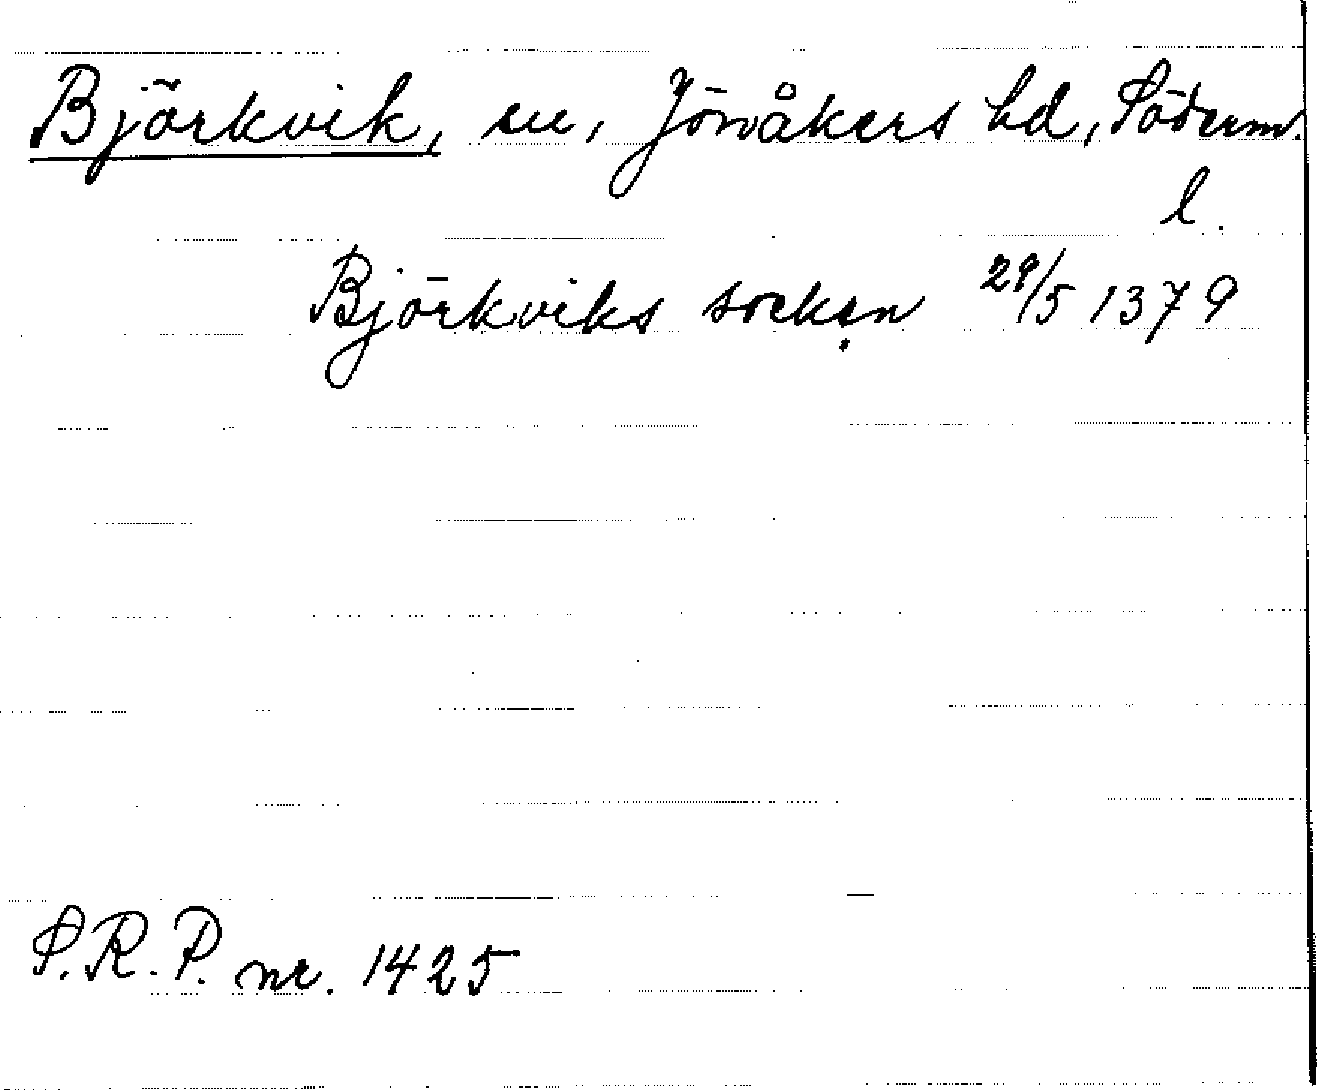 Björkvik, sn, Jönåkers hd, Söderm.
l.
Björkviks sockęn 29/5 1379
S.R.P. nr. 1425